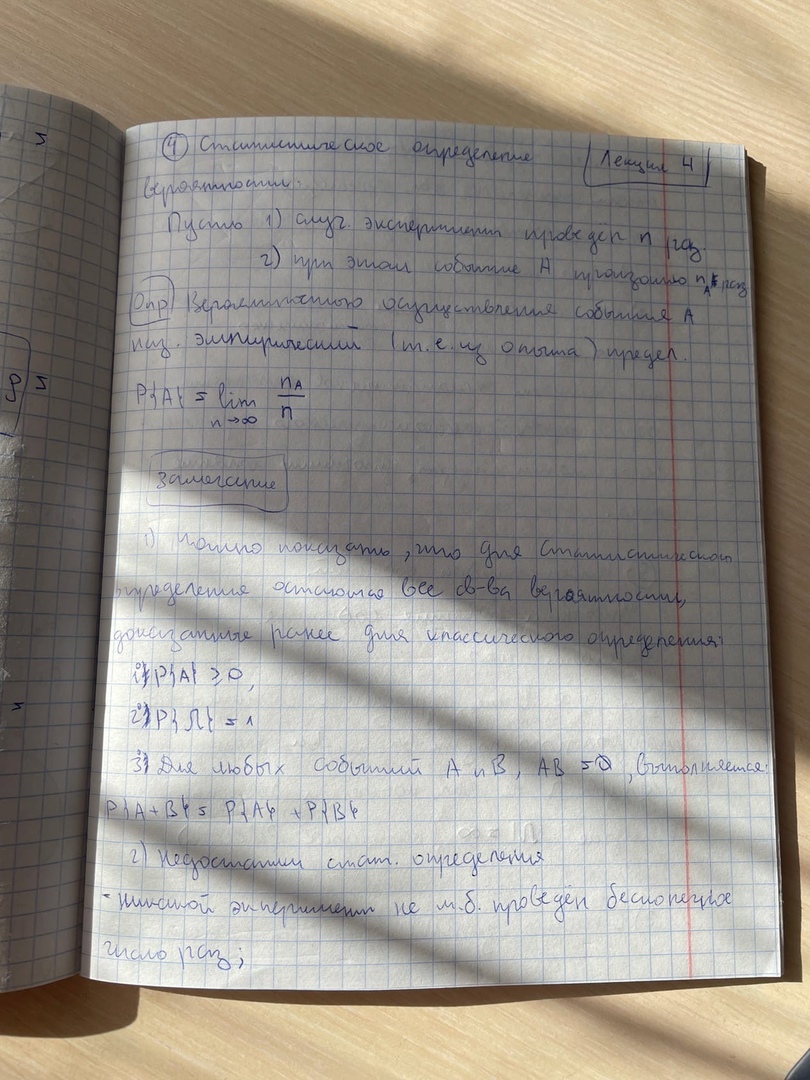 ④ Статистическое определение
Лекция 4
вероятности.
Пусть 1) случ. эксперимент проведён n раз.
2) при этом событие A произошло n_A раз
Опр Вероятностью осуществления события A
наз. эмпирический (т.е. из опыта) предел.
P{A} = lim n→∞ n_A/n
Замечание
1) Можно показать, что для статистического
определения остаются все св-ва вероятности,
доказанные ранее для классического определения:
1) P{A} ≥ 0,
2) P{Ω} = 1
3) Для любых событий A и B, AB = ∅, выполняется:
P{A+B} = P{A} + P{B}
2) Недостатки стат. определения
- никакой эксперимент не м.б. проведён бесконечное
число раз;